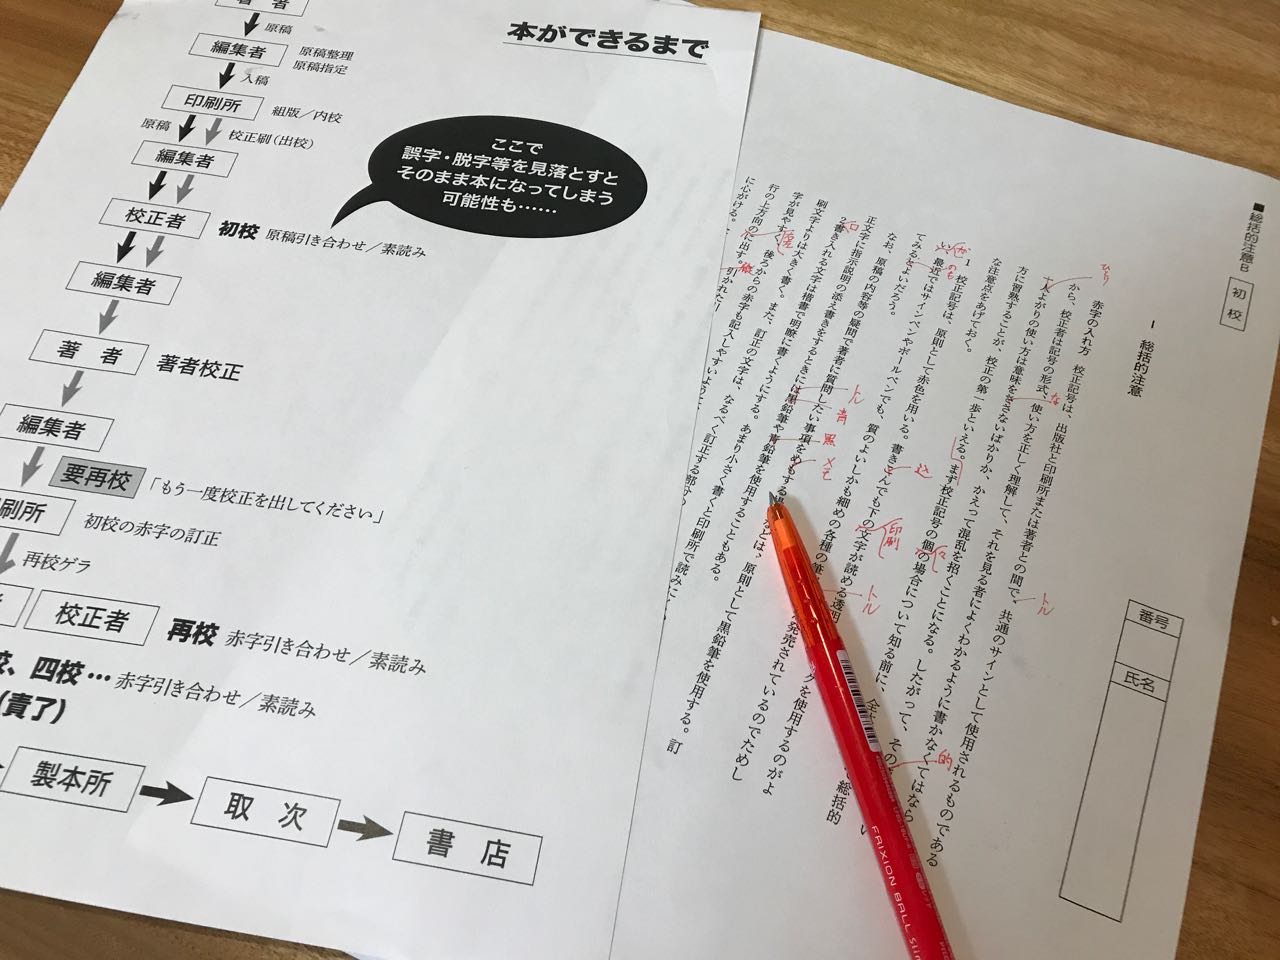 本ができるまで
著者
原稿
編集者
原稿整理
原稿指定
入稿
印刷所
組版／内校
原稿
校正刷（出校）
編集者
校正者
初校 原稿引き合わせ／素読み
ここで
誤字・脱字等を見落とすと
そのまま本になってしまう
可能性も……
編集者
著者
著者校正
編集者
要再校
「もう一度校正を出してください」
刷所
初校の赤字の訂正
再校ゲラ
校正者
再校 赤字引き合わせ／素読み
校、四校…赤字引き合わせ／素読み
（責了）
製本所
取次
書店
■総括的注意B
初校
番号
氏名
Ⅰ 総括的注意
赤字の入れ方 校正記号は、出版社と印刷所または著者との間で、共通のサインとして使用されるものである
から、校正者は記号の形式、使い方を正しく理解して、それを見る者によくわかるように書かなくてはなら
人よがりの使い方は意味をささないばかりか、かえって混乱を招くことになる。したがって、その
方に習熟することが、校正の第一歩といえる。まず校正記号の個の場合について知る前に、全
な注意点をあげておく。
1 校正記号は、原則として赤色を用いる。書きこんでも下の文字が読める透明
最近ではサインペンやボールペンでも、質のよいしかも細めの各種の筆
発売されているのでためし
てみるとよいだろう。
なお、原稿の内容等の疑問で著者に質問したい事項をめもする
などは、原則として黒鉛筆を使用する。訂
正文字に指示説明の添え書きをするときには黒鉛筆や青鉛筆を使用することもある。
2 書き入れる文字は楷書で明瞭に書くようにする。あまり小さく書くと印刷所で読みに
刷文字よりは大きく書く。また、訂正の文字は、なるべく訂正する部分の
字が見やすく、後ろからの赤字も記入しやすいように
行の上方向のに出す。引かれた
に心がける。
ひとり
な
トル
込
々
印刷
トル
的
トル
青
黒
メモ
FRIXION BALL slim